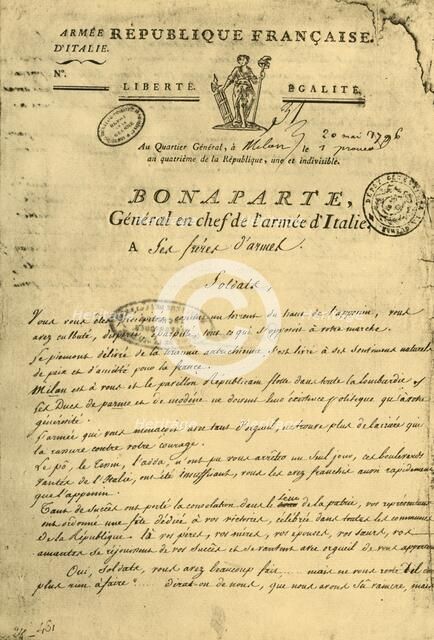 ARMÉE RÉPUBLIQUE FRANÇAISE.
D'ITALIE.
N°.
LIBERTÉ. EGALITÉ.
20 mai 1796
Au Quartier Général, à Milan, le 1 prairial
an quatrième de la République, une et indivisible.
BONAPARTE,
Général en chef de l'armée d'Italie,
A Ses frères d'armes.
Soldats,
Vous vous êtes précipités comme un torrent du haut de l'apennin, vous
avez culbuté, dispersé, éparpillé tout ce qui s'opposoit à votre marche.
Le piemont délivré de la tirannie autrichienne s'est livré à ses sentimens naturels
de paix et d'amitié pour la france.
Milan est à vous et le pavillon Républicain flotte dans toute la lombardie
Les Ducs de parme et de modène ne doivent leur existence politique qu'à votre
générosité.
L'armée qui vous menacoit avec tant d'orgueil, ne trouve plus de barrière qui
la rassure contre votre courage.
Le pô, le tesin, l'adda, n'ont pu vous arrêter un seul jour, ces boulevards
vantés de l'Italie, ont été insuffisant, vous les avez franchis aussi rapidement
que l'apennin.
Tant de succès ont porté la consolation dans le sein de la patrie, vos représentans
ont ordonné une fête dédiée à vos victoires, célébrée dans toutes les communes
de la République. là vos pères, vos mères, vos épouses, vos sœurs, vos
amantes se réjouissent de vos succès et se vantent avec orgueil de vous appartenir
Oui, soldats, vous avez beaucoup fait .... mais ne vous reste-t-il donc
plus rien à faire? .... dira-t-on de nous, que nous avons sû vaincre, mais